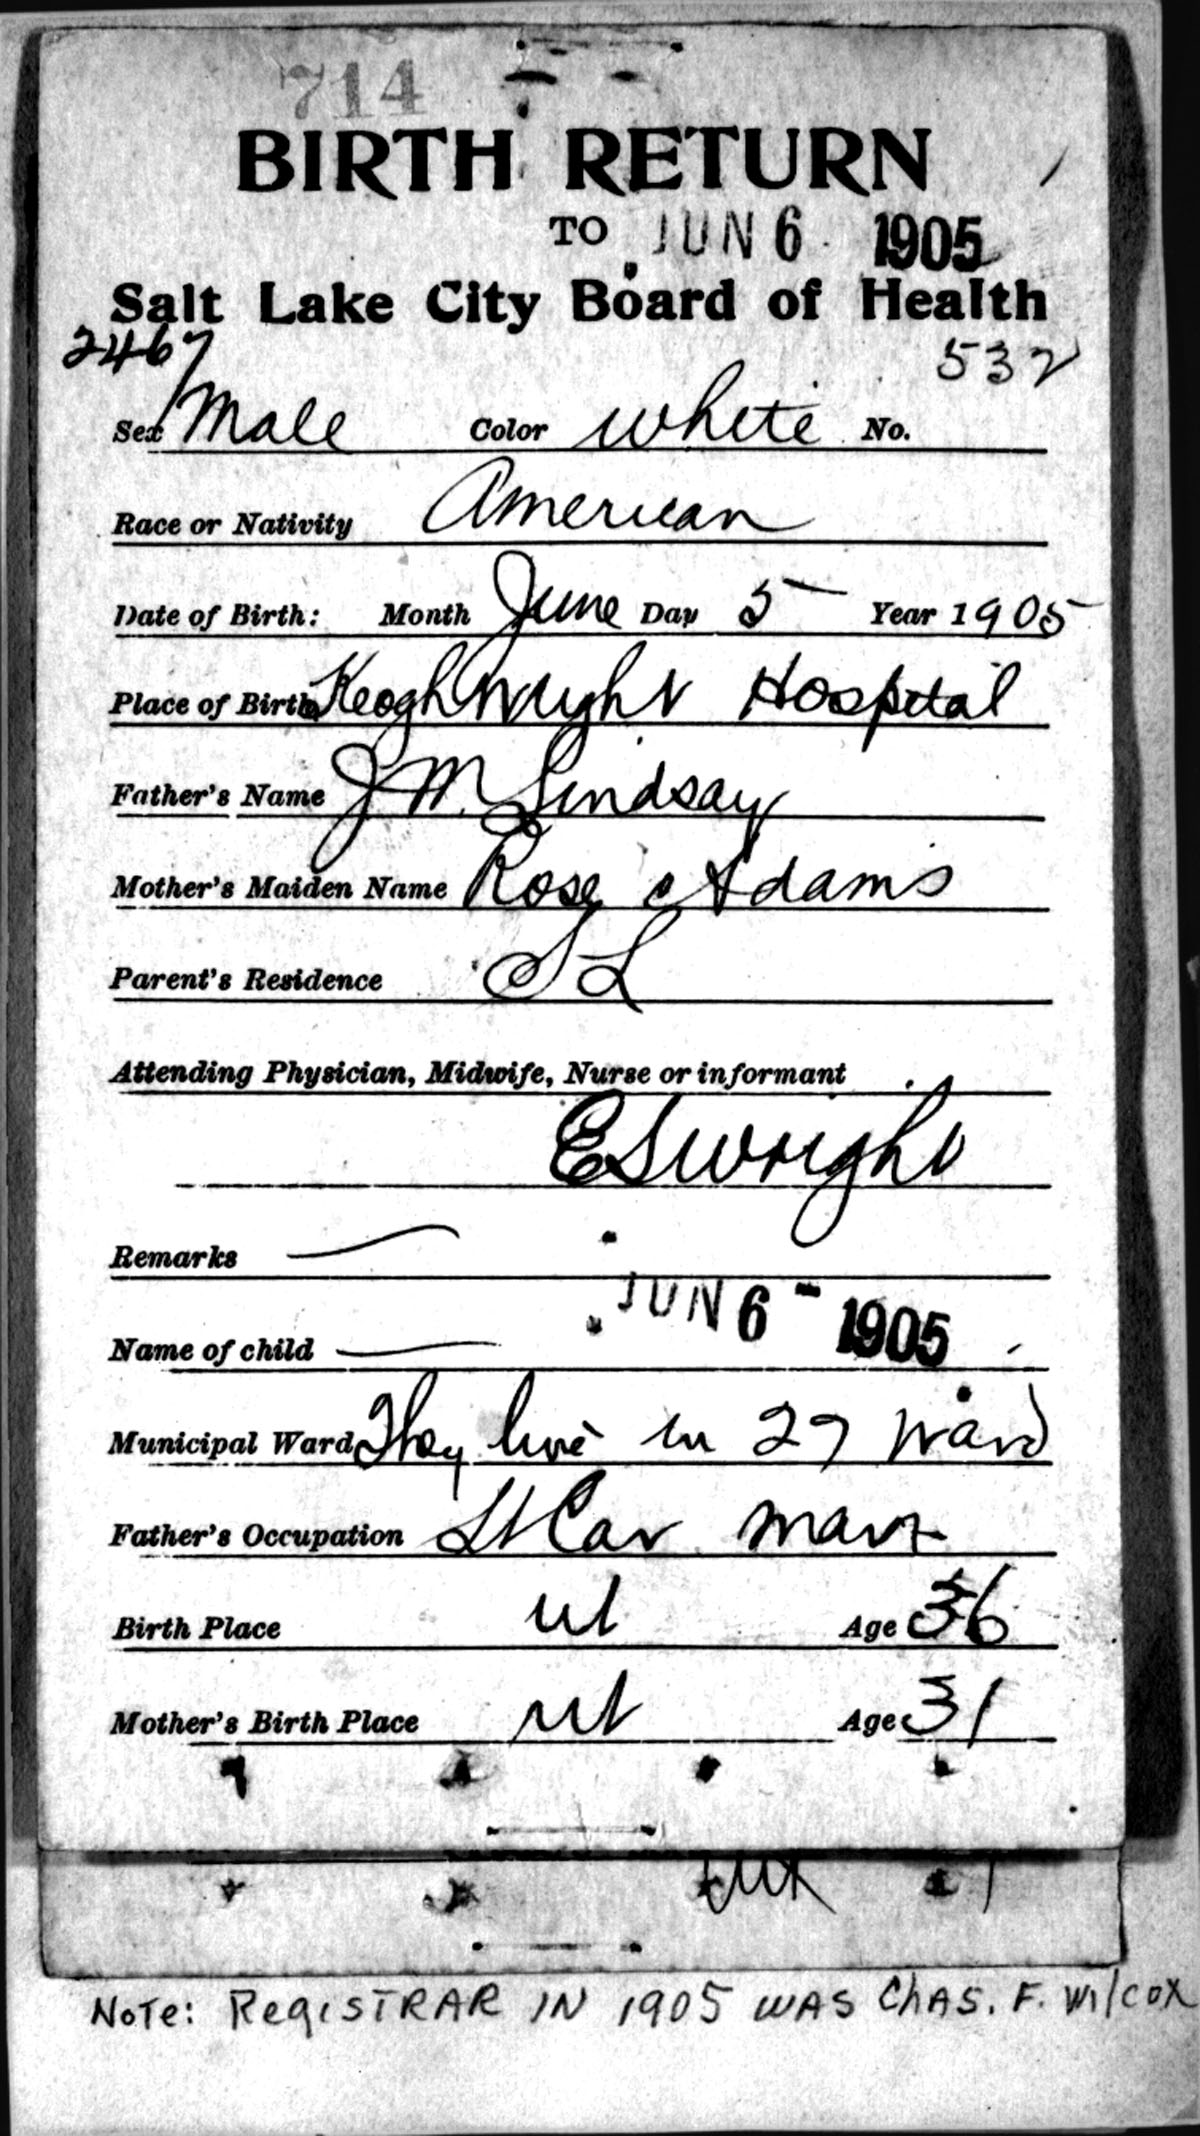 714
BIRTH RETURN
TO JUN 6 1905
Salt Lake City Board of Health
2467 532
Sex Male Color white No.
Race or Nativity American
Date of Birth: Month June Day 5 Year 1905
Place of Birth Keogh Wright Hospital
Father's Name J M. Lindsay
Mother's Maiden Name Rose Adams
Parent's Residence S L
Attending Physician, Midwife, Nurse or informant
E S Wright
Remarks —
JUN 6 - 1905
Name of child —
Municipal Ward They live in 27 Ward
Father's Occupation St Car man
Birth Place ut Age 36
Mother's Birth Place ut Age 31
Note: REGISTRAR IN 1905 WAS CHAS. F. Wilcox